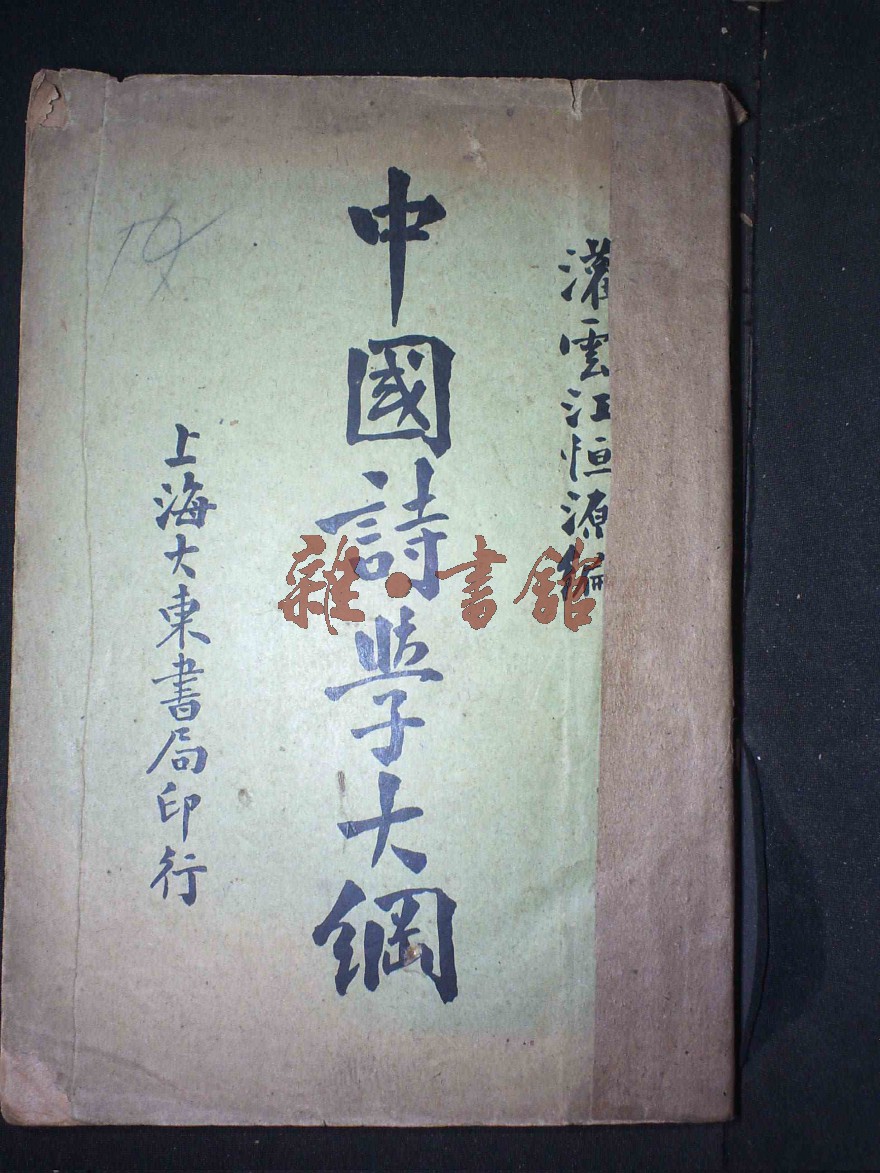 灌雲江恒源編
中國詩學大綱
上海大東書局印行
雜·書館